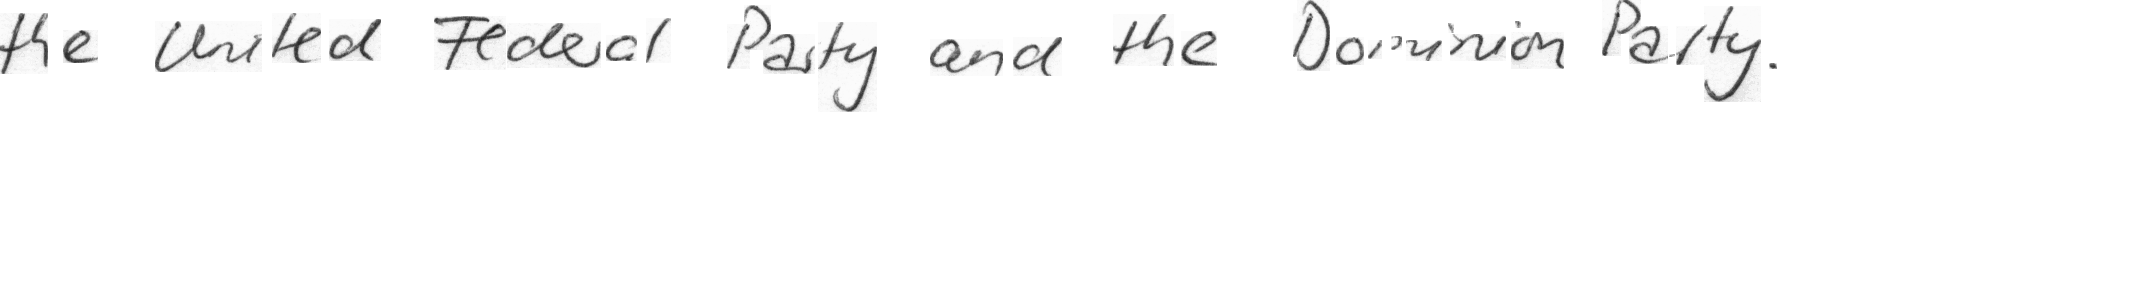 the United Federal Party and the Dominion Party.